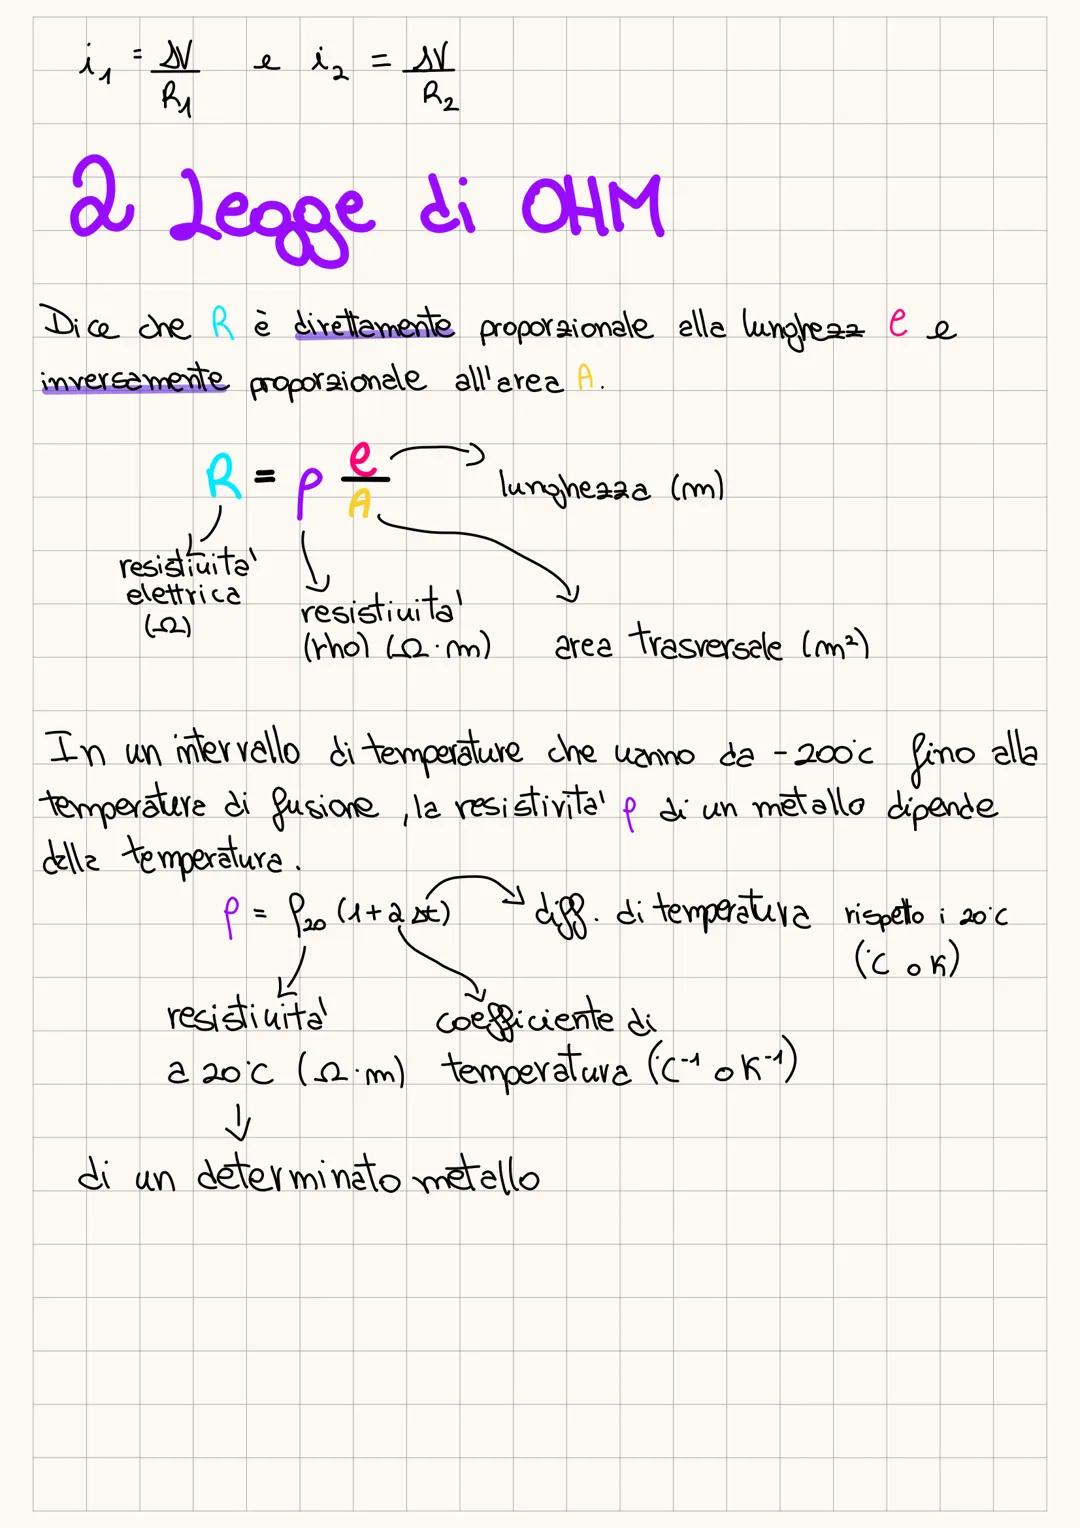 i₁ = ΔV/R₁ e i₂ = ΔV/R₂
2 Legge di OHM
Dice che R è direttamente proporzionale alla lunghezz l e
inversamente proporzionale all'area A.
R = ρ l/A
lunghezza (m)
resistività
elettrica
(Ω)
resistività
(rho) (Ω·m)
area trasversale (m²)
In un intervallo di temperature che vanno da -200°c fino alla
temperatura di fusione, la resistività ρ di un metallo dipende
dalla temperatura.
ρ = ρ₂₀ (1+α Δt)
diff. di temperatura rispetto i 20°c
(°C o K)
resistività
a 20°C (Ω·m)
coefficiente di
temperatura (°C⁻¹ o K⁻¹)
di un determinato metallo